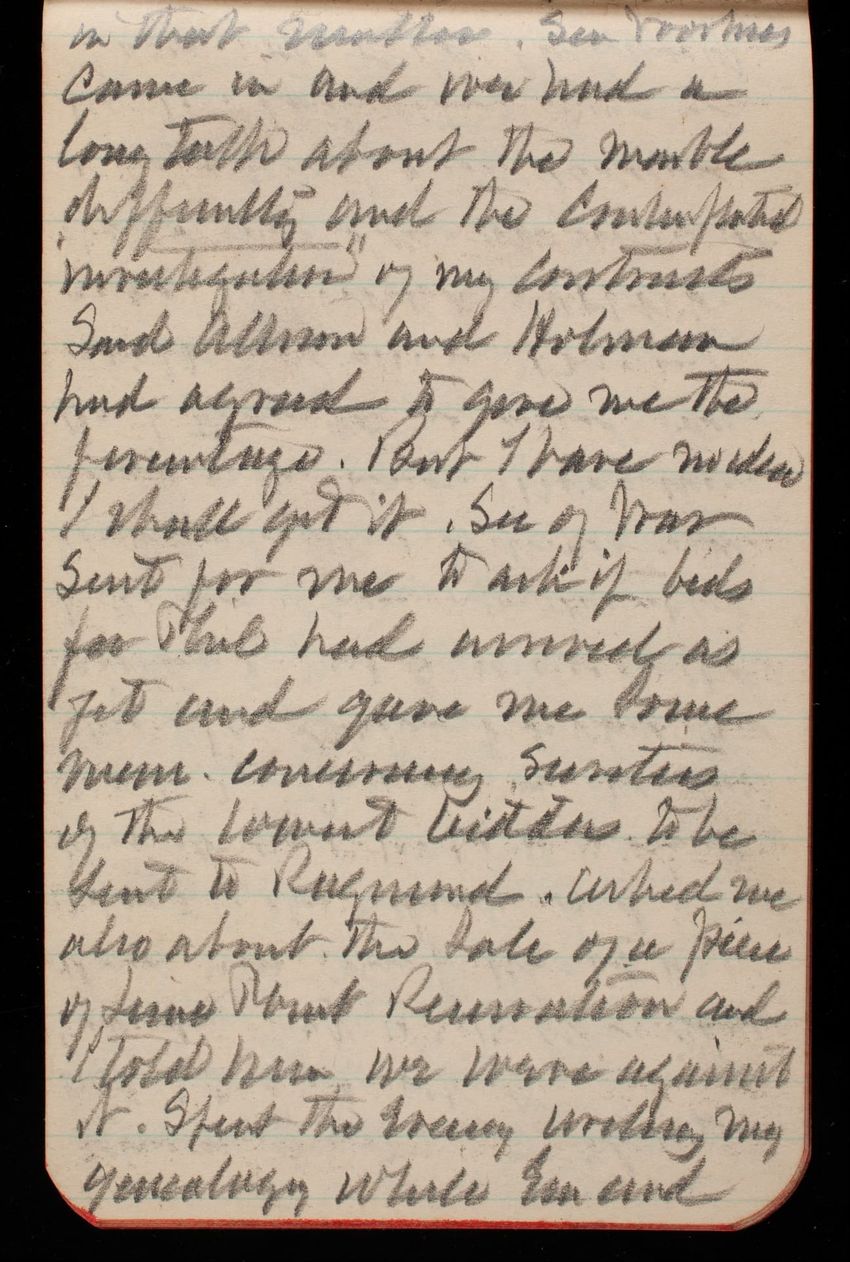 in that matter. Sen Voorhees
came in and we had a
long talk about the marble
difficulty and the contemplated
"investigation" of my contracts
Said Allison and Holman
had agreed to give me the
percentage. But I have no idea
I shall get it. Sec of War
Sent for me to ask if bids
for Phil had arrived as
yet and gave me some
mem. concerning Sureties
of the lowest bidders to be
sent to Raymond. Asked me
also about the Sale of a piece
of Lime Point Reservation and
I told him we were against
it. Spent the Evening writing my
genealogy while Em and